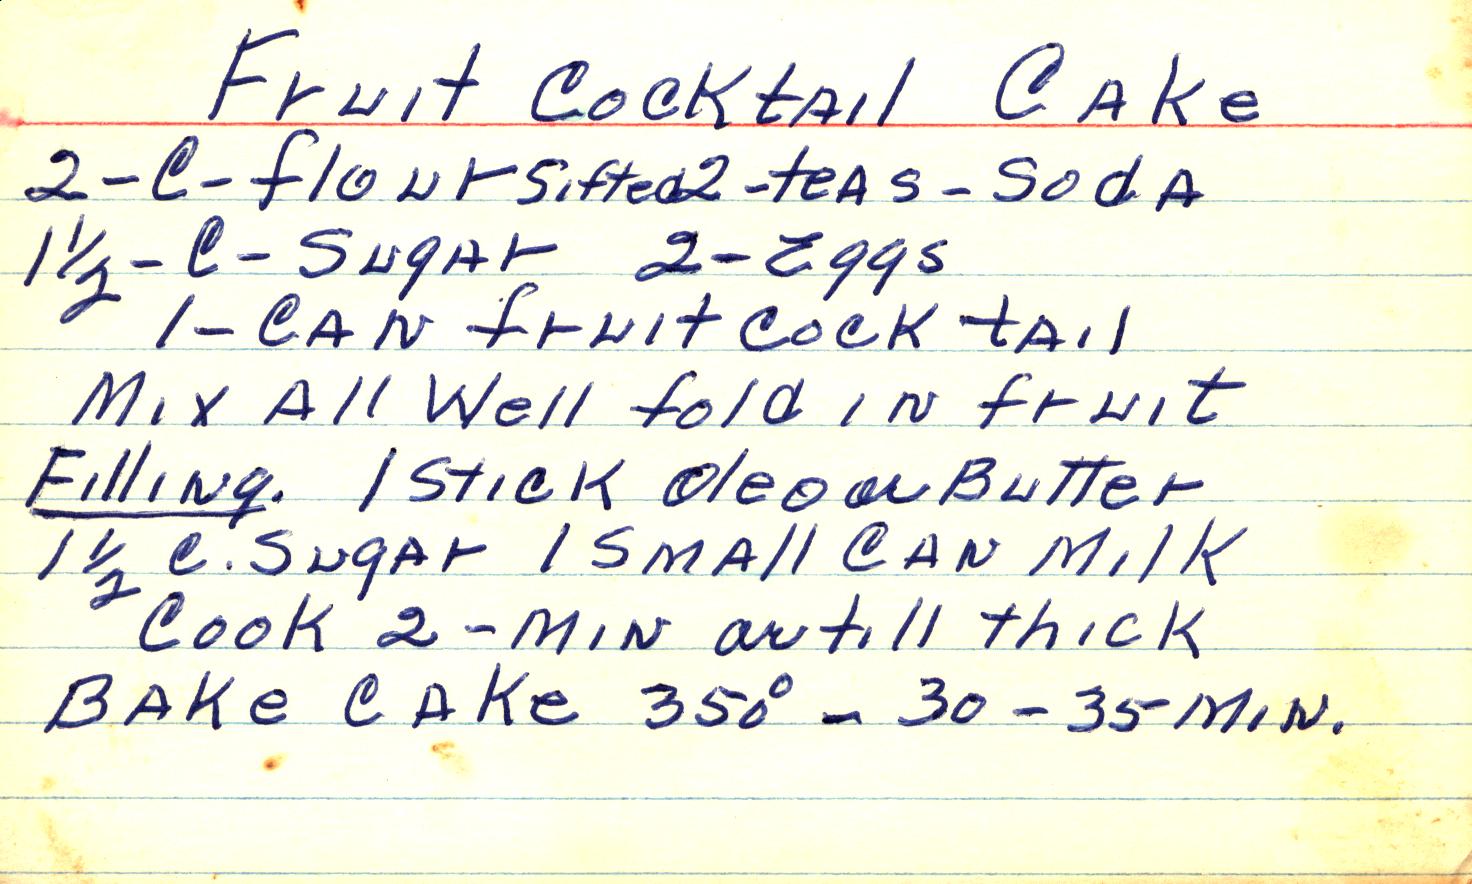 Fruit Cocktail Cake
2-C-flour sifted 2-teas-Soda
1 1/2-C-Sugar 2-Eggs
1-Can fruit cock tail
Mix All Well fold in fruit
Filling. 1 Stick oleo or Butter
1 1/2 C. Sugar 1 Small Can Milk
Cook 2-Min or till thick
Bake Cake 350° - 30 - 35 Min.